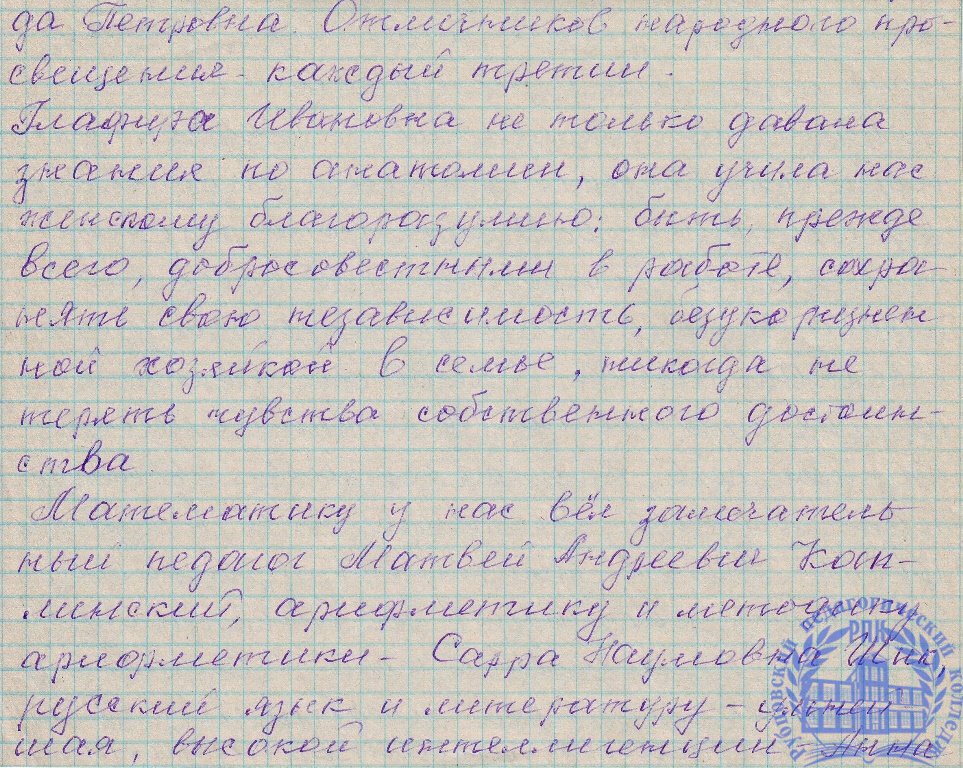 да Петровна. Отличников народного про-
свещения - каждый третий.
Глафира Ивановна не только давала
знания по анатомии, она учила нас
женскому благоразумию: быть, прежде
всего, добросовестными в работе, сохра-
нять свою независимость, безукоризнен
ной хозяйкой в семье, никогда не
терять чувства собственного достоин-
ства
Математику у нас вёл замечатель
ный педагог Матвей Андреевич
арифметику и методику
арифметики - Сарра Наумовна
русский язык и литературу -
шая, высокой интеллигенции - Анна
Рубцовский педагогический колледж
РПК